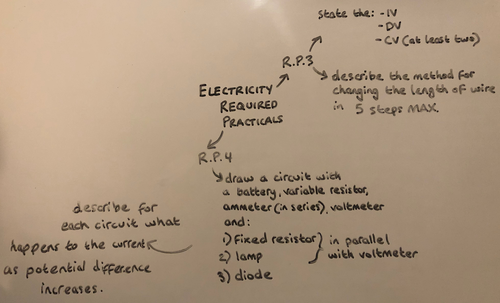 state the: - IV
- DV
- CV (at least two)
R.P.3
describe the method for
changing the length of wire
in 5 steps MAX.
ELECTRICITY
REQUIRED
PRACTICALS
R.P.4
draw a circuit with
a battery, variable resistor,
ammeter (in series), voltmeter
and:
1) fixed resistor
2) lamp
3) diode
in parallel
with voltmeter
describe for
each circuit what
happens to the current
as potential difference
increases.